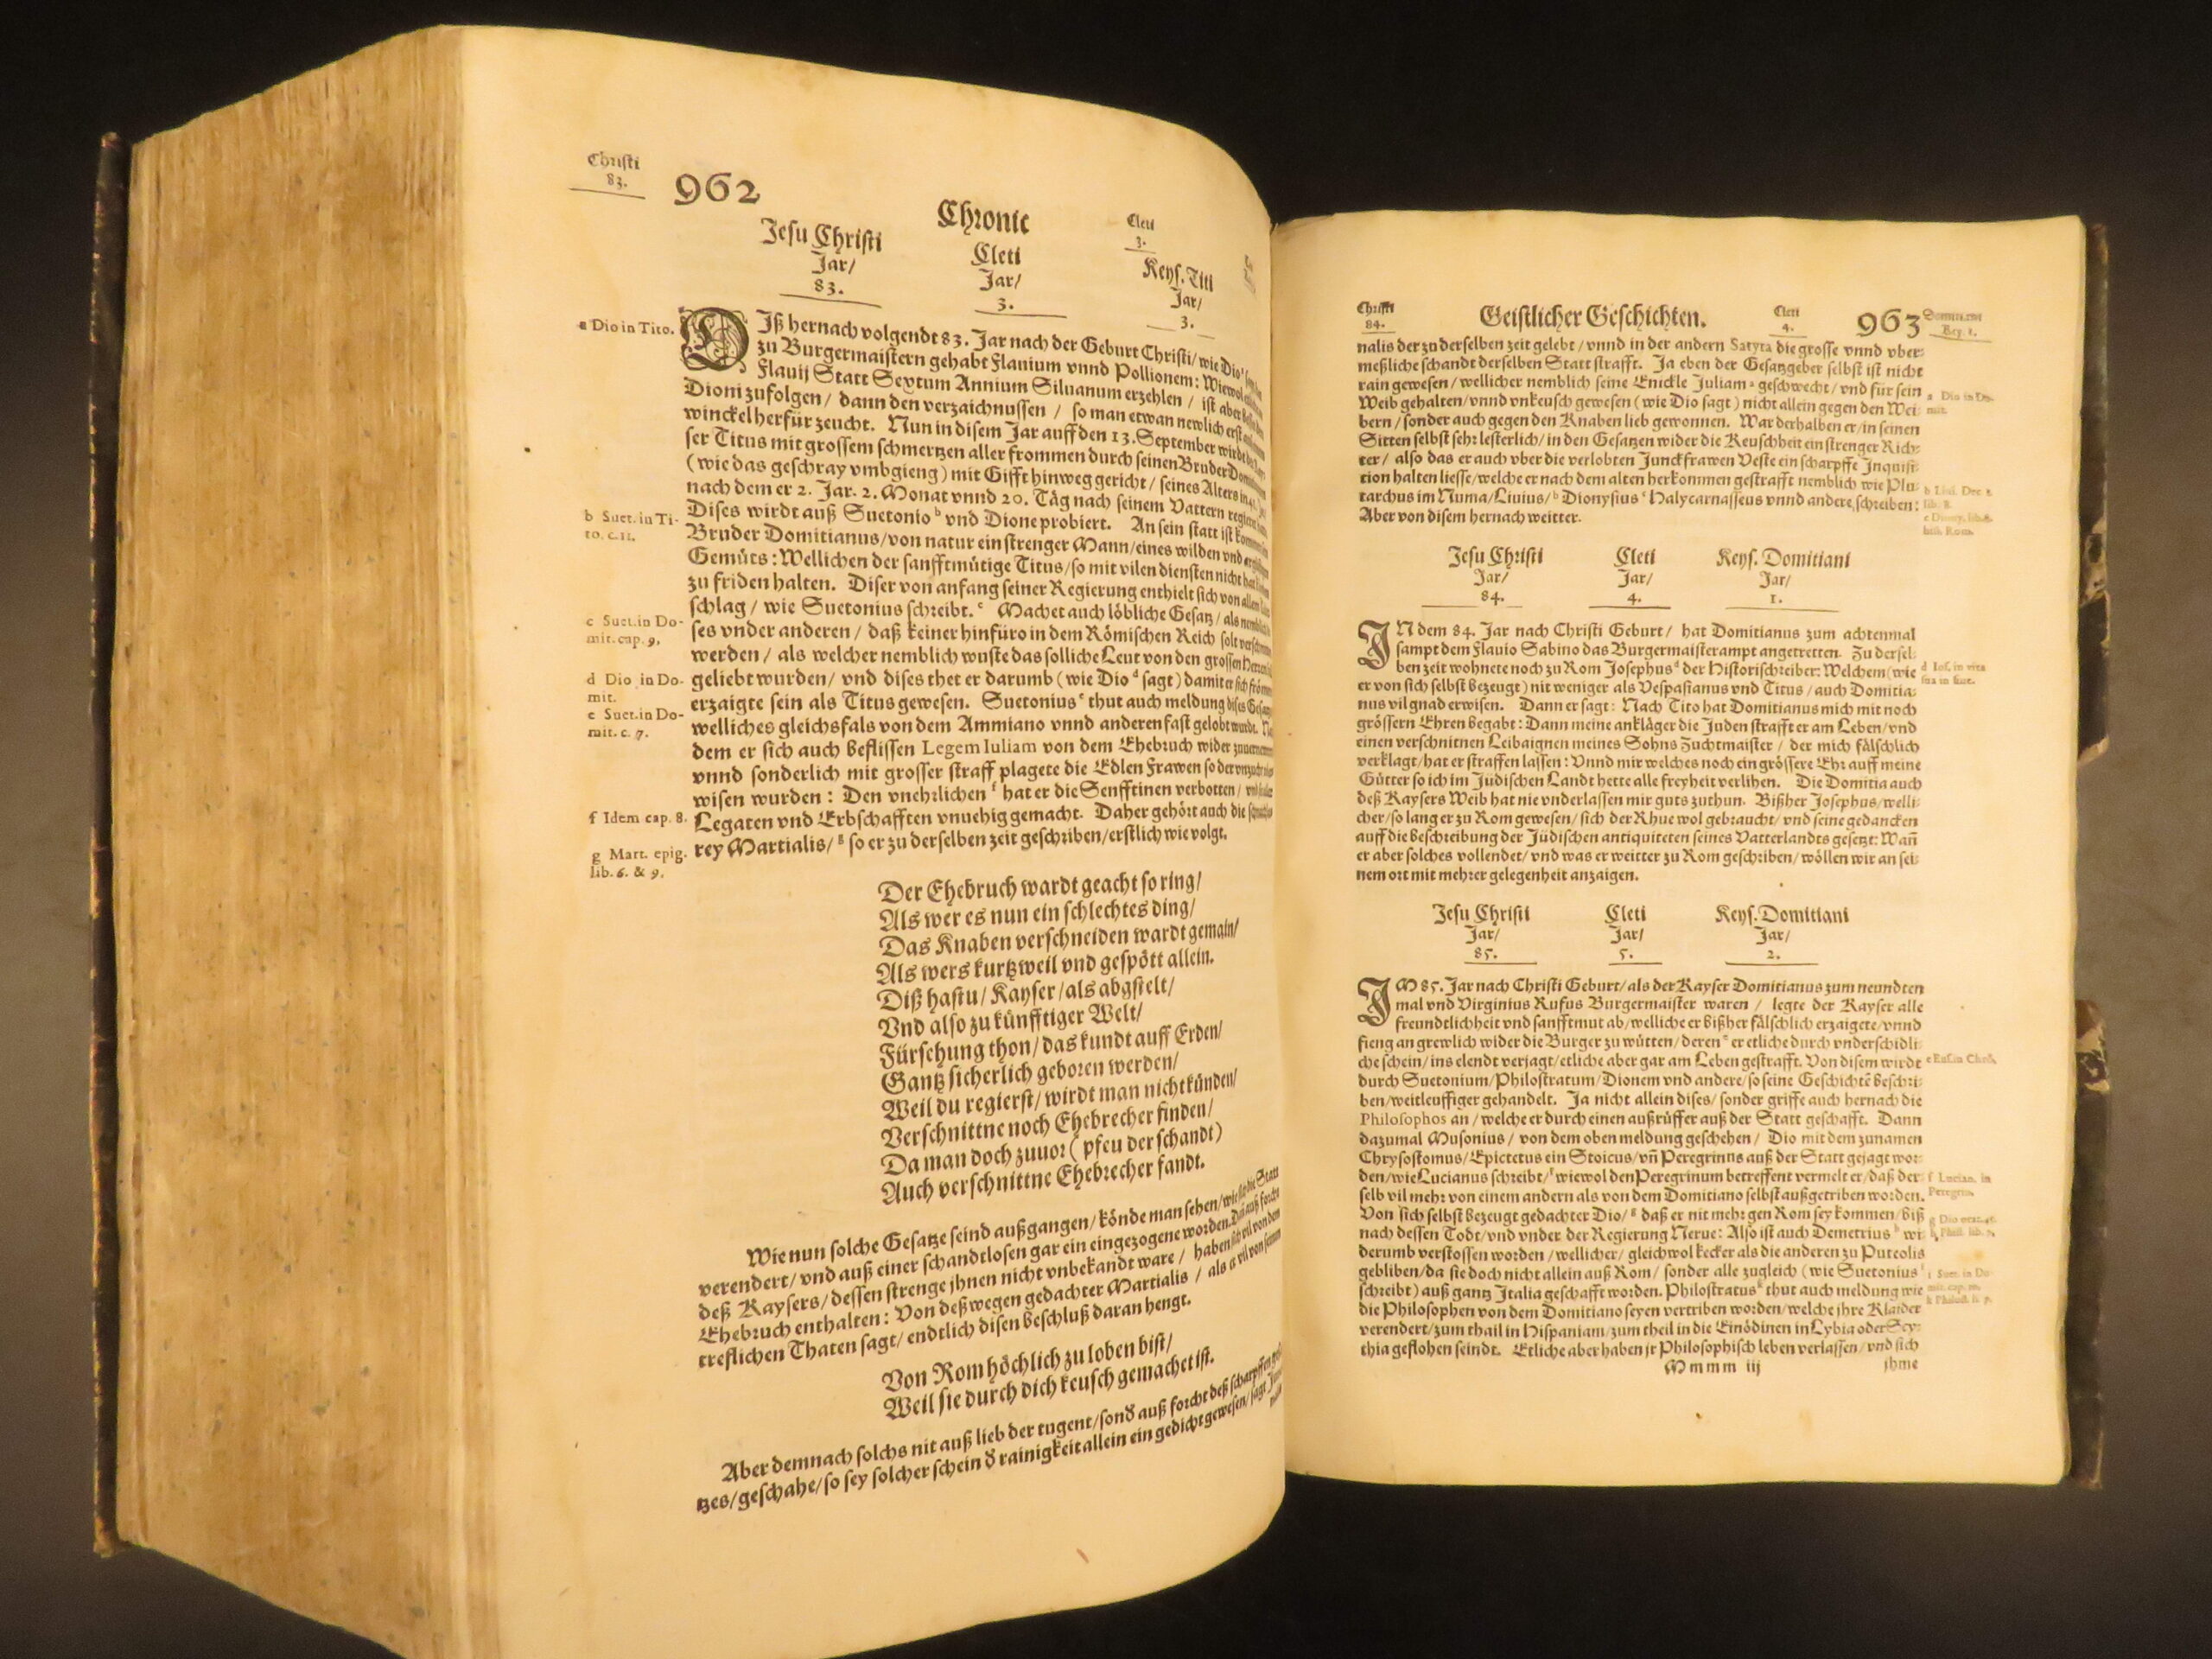 Christi
83.
962
Chronic
Cleti
3.
Jesu Christi
Jar/
83.
Cleti
Jar/
3.
Keys. Titi
Jar/
3.
a Dio in Tito.
DIß hernach volgendt 83. Jar nach der Geburt Christi/ wie Dio
zu Burgermaistern gehabt Flauium vnnd Pollionem: Wiewol
Flauij Statt Sextum Annium Siluanum erzehlen / ist aber
Dioni zufolgen / dann den verzaichnussen / so man etwan newlich erst
winckel herfür zeucht. Nun in disem Jar auff den 13. September wirdt
ser Titus mit grossem schmertzen aller frommen durch seinen Bruder
(wie das geschray vmbgieng) mit Gifft hinweg gericht / seines Alters in
nach dem er 2. Jar. 2. Monat vnnd 20. Täg nach seinem Vattern regiert
b Suet. in Ti-
to. c. 11.
Dises wirdt auß Suetonio b vnd Dione probiert. An sein statt ist
Bruder Domitianus/ von natur ein strenger Mann/ eines wilden vnd
Gemüts: Wellichen der sanfftmütige Titus/ so mit vilen diensten nicht
zu friden halten. Diser von anfang seiner Regierung enthielt sich von
schlag / wie Suetonius schreibt. c Machet auch löbliche Gesatz / als
c Suet. in Do-
mit. cap. 9.
ses vnder anderen / daß keiner hinfüro in dem Römischen Reich solt
werden / als welcher nemblich wuste das solliche Leut von den grossen
d Dio in Do-
mit.
geliebt wurden/ vnd dises thet er darumb (wie Dio d sagt) damit er sich
erzaigte sein als Titus gewesen. Suetonius e thut auch meldung dises
e Suet. in Do-
mit. c. 7.
welliches gleichsfals von dem Ammiano vnnd anderen fast gelobt wurdt.
dem er sich auch beflissen Legem Iuliam von dem Ehebruch wider
vnnd sonderlich mit grosser straff plagete die Edlen Frawen so der
wisen wurden : Den vnehrlichen f hat er die Senfftinen verbotten /
f Idem cap. 8.
Legaten vnd Erbschafften vnuehig gemacht. Daher gehört auch die
g Mart. epig.
lib. 6. & 9.
rey Martialis/ g so er zu derselben zeit geschriben/ erstlich wie volgt.
Der Ehebruch wardt geacht so ring/
Als wer es nun ein schlechtes ding/
Das Knaben verschneiden wardt gemain/
Als wers kurtzweil vnd gespött allein.
Diß hastu/ Kayser/ als abgstelt/
Vnd also zu künfftiger Welt/
Fürsehung thon/ das kundt auff Erden/
Gantz sicherlich geboren werden/
Weil du regierst/ wirdt man nicht künden/
Verschnittne noch Ehebrecher finden/
Da man doch zuuor ( pfeu der schandt)
Auch verschnittne Ehebrecher fandt.
Wie nun solche Gesatze seind außgangen/ könde man sehen/ wie die Statt
verendert/ vnd auß einer schandtlosen gar ein eingezogene worden. auß forcht
deß Kaysers/ dessen strenge jhnen nicht vnbekandt ware / haben sich vil von dem
Ehebruch enthalten: Von deßwegen gedachter Martialis / als er vil von seinen
treflichen Thaten sagt/ endtlich disen beschluß daran hengt.
Von Rom höchlich zu loben bist/
Weil sie durch dich keusch gemachet ist.
Aber demnach solchs nit auß lieb der tugent/ sond̄ auß forcht deß scharpffen
tzes/ geschahe/ so sey solcher schein d̄ rainigkeit allein ein gedicht gewesen/ sagt
Christi
84.
Geistlicher Geschichten.
Cleti
4.
963
nalis der zu derselben zeit gelebt / vnnd in der andern Satyra die grosse vnnd vber-
meßliche schandt derselben Statt strafft. Ja eben der Gesatzgeber selbst ist nicht
rain gewesen / wellicher nemblich seine Enickle Juliam a geschwecht / vnd für sein
a Dio in Do-
mit.
Weib gehalten/ vnnd vnkeusch gewesen (wie Dio sagt) nicht allein gegen den Wei-
bern / sonder auch gegen den Knaben lieb gewonnen. War derhalben er/ in seinen
Sitten selbst sehr lesterlich/ in den Gesatzen wider die Keuschheit ein strenger Rich-
ter / also das er auch vber die verlobten Junckfrawen Veste ein scharpffe Inquisi-
tion halten liesse/ welche er nach dem alten herkommen gestrafft nemblich wie Plu-
tarchus im Numa/ Liuius/ b Dionysius c Halycarnasseus vnnd andere, schreiben:
Aber von disem hernach weitter.
Jesu Christi
Jar/
84.
Cleti
Jar/
4.
Keys. Domitiani
Jar/
1.
IN dem 84. Jar nach Christi Geburt / hat Domitianus zum achtenmal
sampt dem Flauio Sabino das Burgermaisterampt angetretten. Zu dersel-
ben zeit wohnete noch zu Rom Josephus d der Historischreiber: Welchem (wie
d Ios. in vita
er von sich selbst bezeugt) nit weniger als Vespasianus vnd Titus / auch Domitia-
nus vil gnad erwisen. Dann er sagt: Nach Tito hat Domitianus mich mit noch
grössern Ehren begabt: Dann meine ankläger die Juden strafft er am Leben/ vnd
einen verschnitnen Leibaignen meines Sohns Zuchtmaister / der mich fälschlich
verklagt/ hat er straffen lassen: Vnnd mir welches noch ein grössere Ehr auff meine
Gütter so ich im Jüdischen Landt hette alle freyheit verlihen. Die Domitia auch
deß Kaysers Weib hat nie vnderlassen mir guts zuthun. Bißher Josephus/ welli-
cher/ so lang er zu Rom gewesen/ sich der Rhue wol gebraucht/ vnd seine gedancken
auff die beschreibung der Jüdischen antiquiteten seines Vatterlandts gesetzt: Wañ
er aber solches vollendet/ vnd was er weitter zu Rom geschriben/ wöllen wir an sei-
nem ort mit mehrer gelegenheit anzaigen.
Jesu Christi
Jar/
85.
Cleti
Jar/
5.
Keys. Domitiani
Jar/
2.
IM 85. Jar nach Christi Geburt/ als der Kayser Domitianus zum neundten
mal vnd Virginius Rufus Burgermaister waren / legte der Kayser alle
freundtlichheit vnd sanfftmut ab/ welliche er bißher fälschlich erzaigete/ vnnd
fieng an grewlich wider die Burger zu wütten/ deren e er etliche durch vnderschidli-
che schein/ ins elendt verjagt/ etliche aber gar am Leben gestrafft. Von disem wirdt
e Eus. in Chrō.
durch Suetonium/ Philostratum/ Dionem vnd andere/ so seine Geschichtē beschri-
ben/ weitleuffiger gehandelt. Ja nicht allein dises/ sonder griffe auch hernach die
Philosophos an / welche er durch einen außrüffer auß der Statt geschafft. Dann
dazumal Musonius / von dem oben meldung geschehen / Dio mit dem zunamen
Chrysostomus/ Epictetus ein Stoicus/ vñ Peregrinus auß der Statt gejagt wor-
den/ wie Lucianus schreibt/ f wiewol den Peregrinum betreffent vermelt er/ daß der-
f Lucian. in
Peregrin.
selb vil mehr von einem andern als von dem Domitiano selbst außgetriben worden.
Von sich selbst bezeugt gedachter Dio/ g daß er nit mehr gen Rom sey kommen/ biß
nach dessen Todt/ vnd vnder der Regierung Nerue: Also ist auch Demetrius h wi-
derumb verstossen worden / wellicher/ gleichwol kecker als die anderen zu Puteolis
gebliben/ da sie doch nicht allein auß Rom/ sonder alle zugleich (wie Suetonius i
schreibt) auß gantz Italia geschafft worden. Philostratus k thut auch meldung wie
die Philosophen von dem Domitiano seyen vertriben worden/ welche jhre Klaider
verendert/ zum thail in Hispaniam/ zum theil in die Einödinen in Lybia oder Scy-
thia geflohen seindt. Etliche aber haben jr Philosophisch leben verlassen/ vnd sich
Mmmm iij
jhme